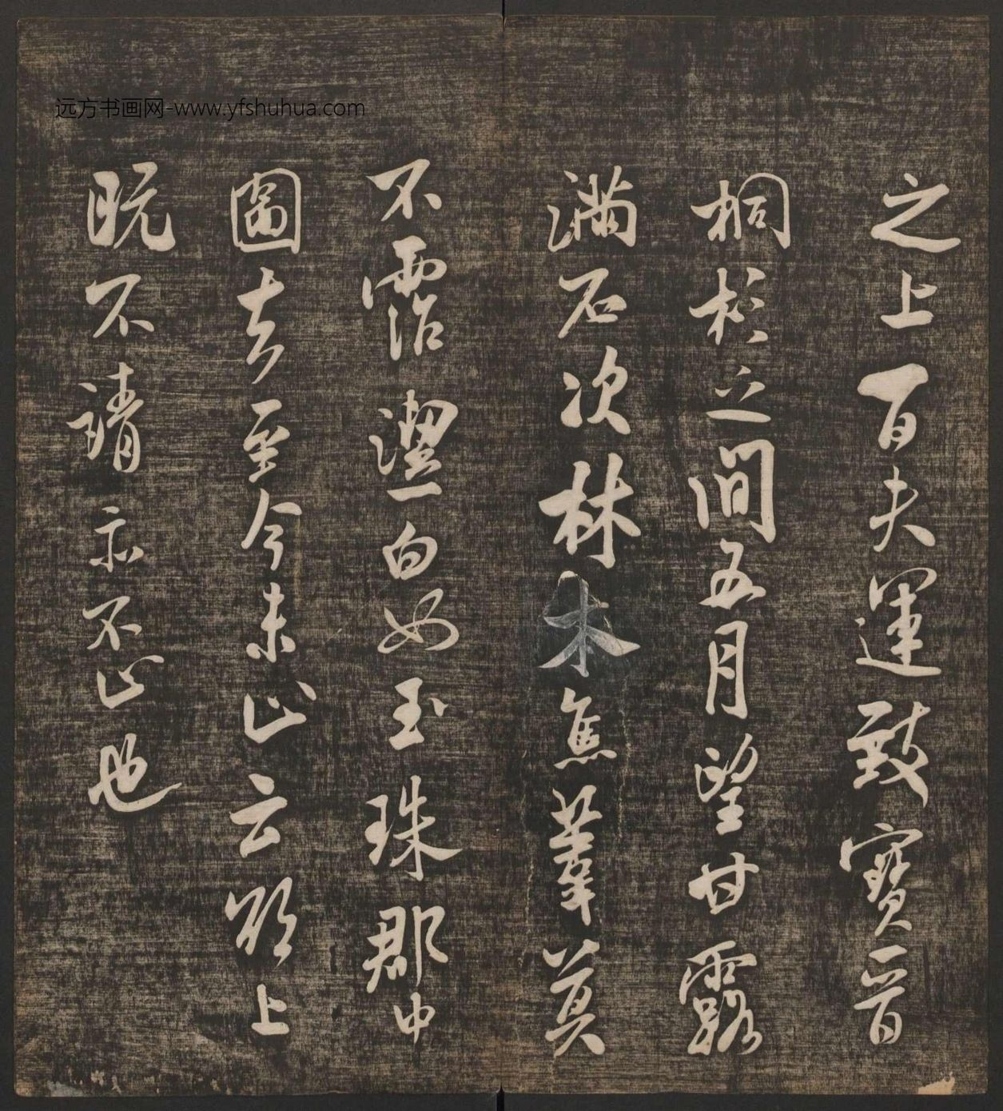 远方书画网-www.yfshuhua.com
之上百夫運致寶晉
桐杉之間五月望甘露
滿石次林木焦葦莫
不霑潔白如玉珠郡中
圖去至今未止云欲上
既不請亦不止也